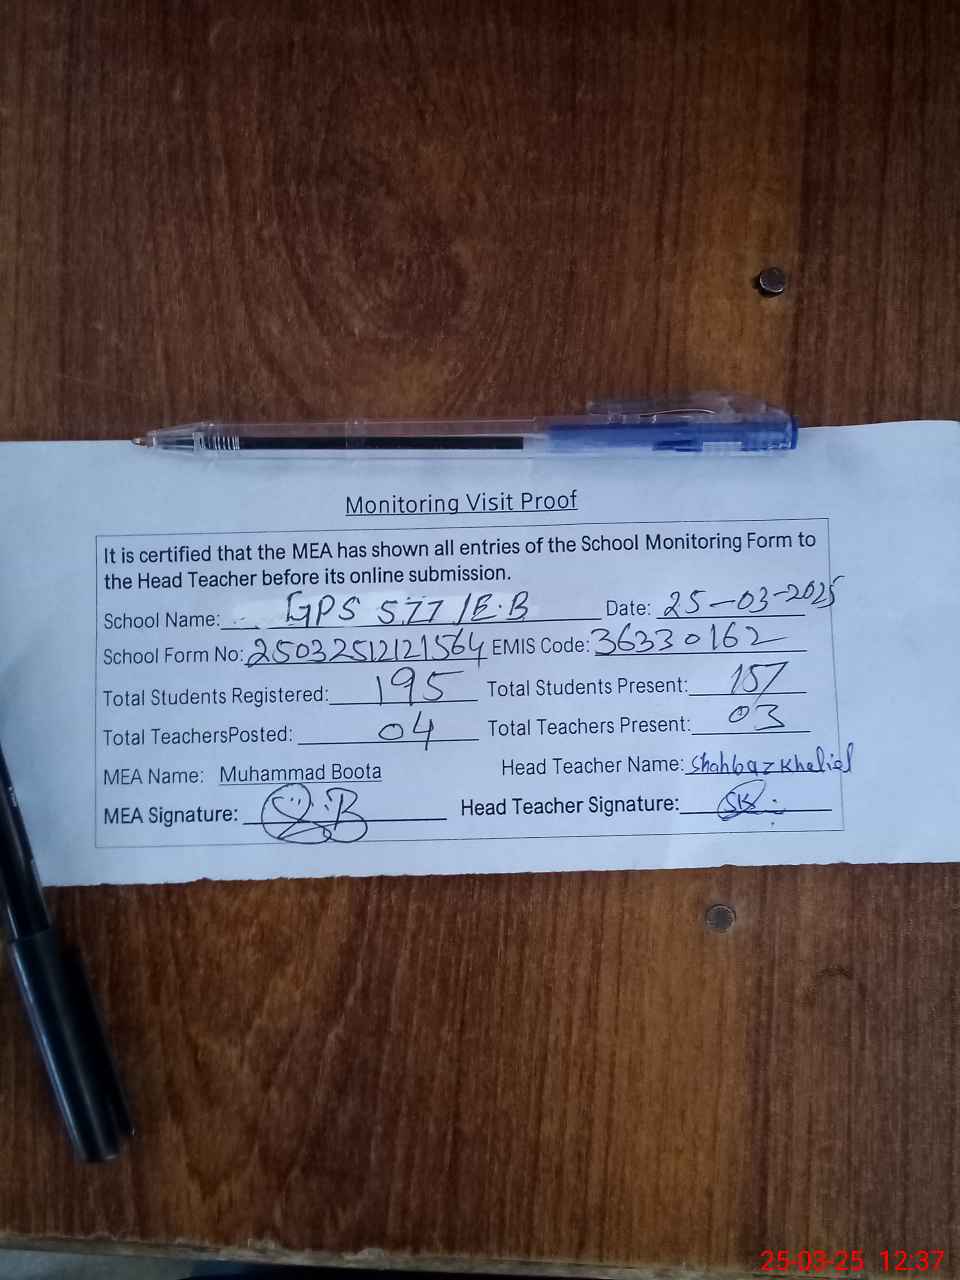 Monitoring Visit Proof
It is certified that the MEA has shown all entries of the School Monitoring Form to
the Head Teacher before its online submission.
School Name: GPS 577/E.B Date: 25-03-2025
School Form No: 25032512121564 EMIS Code: 36330162
Total Students Registered: 195 Total Students Present: 157
Total TeachersPosted: 04 Total Teachers Present: 03
MEA Name: Muhammad Boota Head Teacher Name: Shahbaz Khaliel
MEA Signature: Head Teacher Signature: SK
25-03-25 12:37